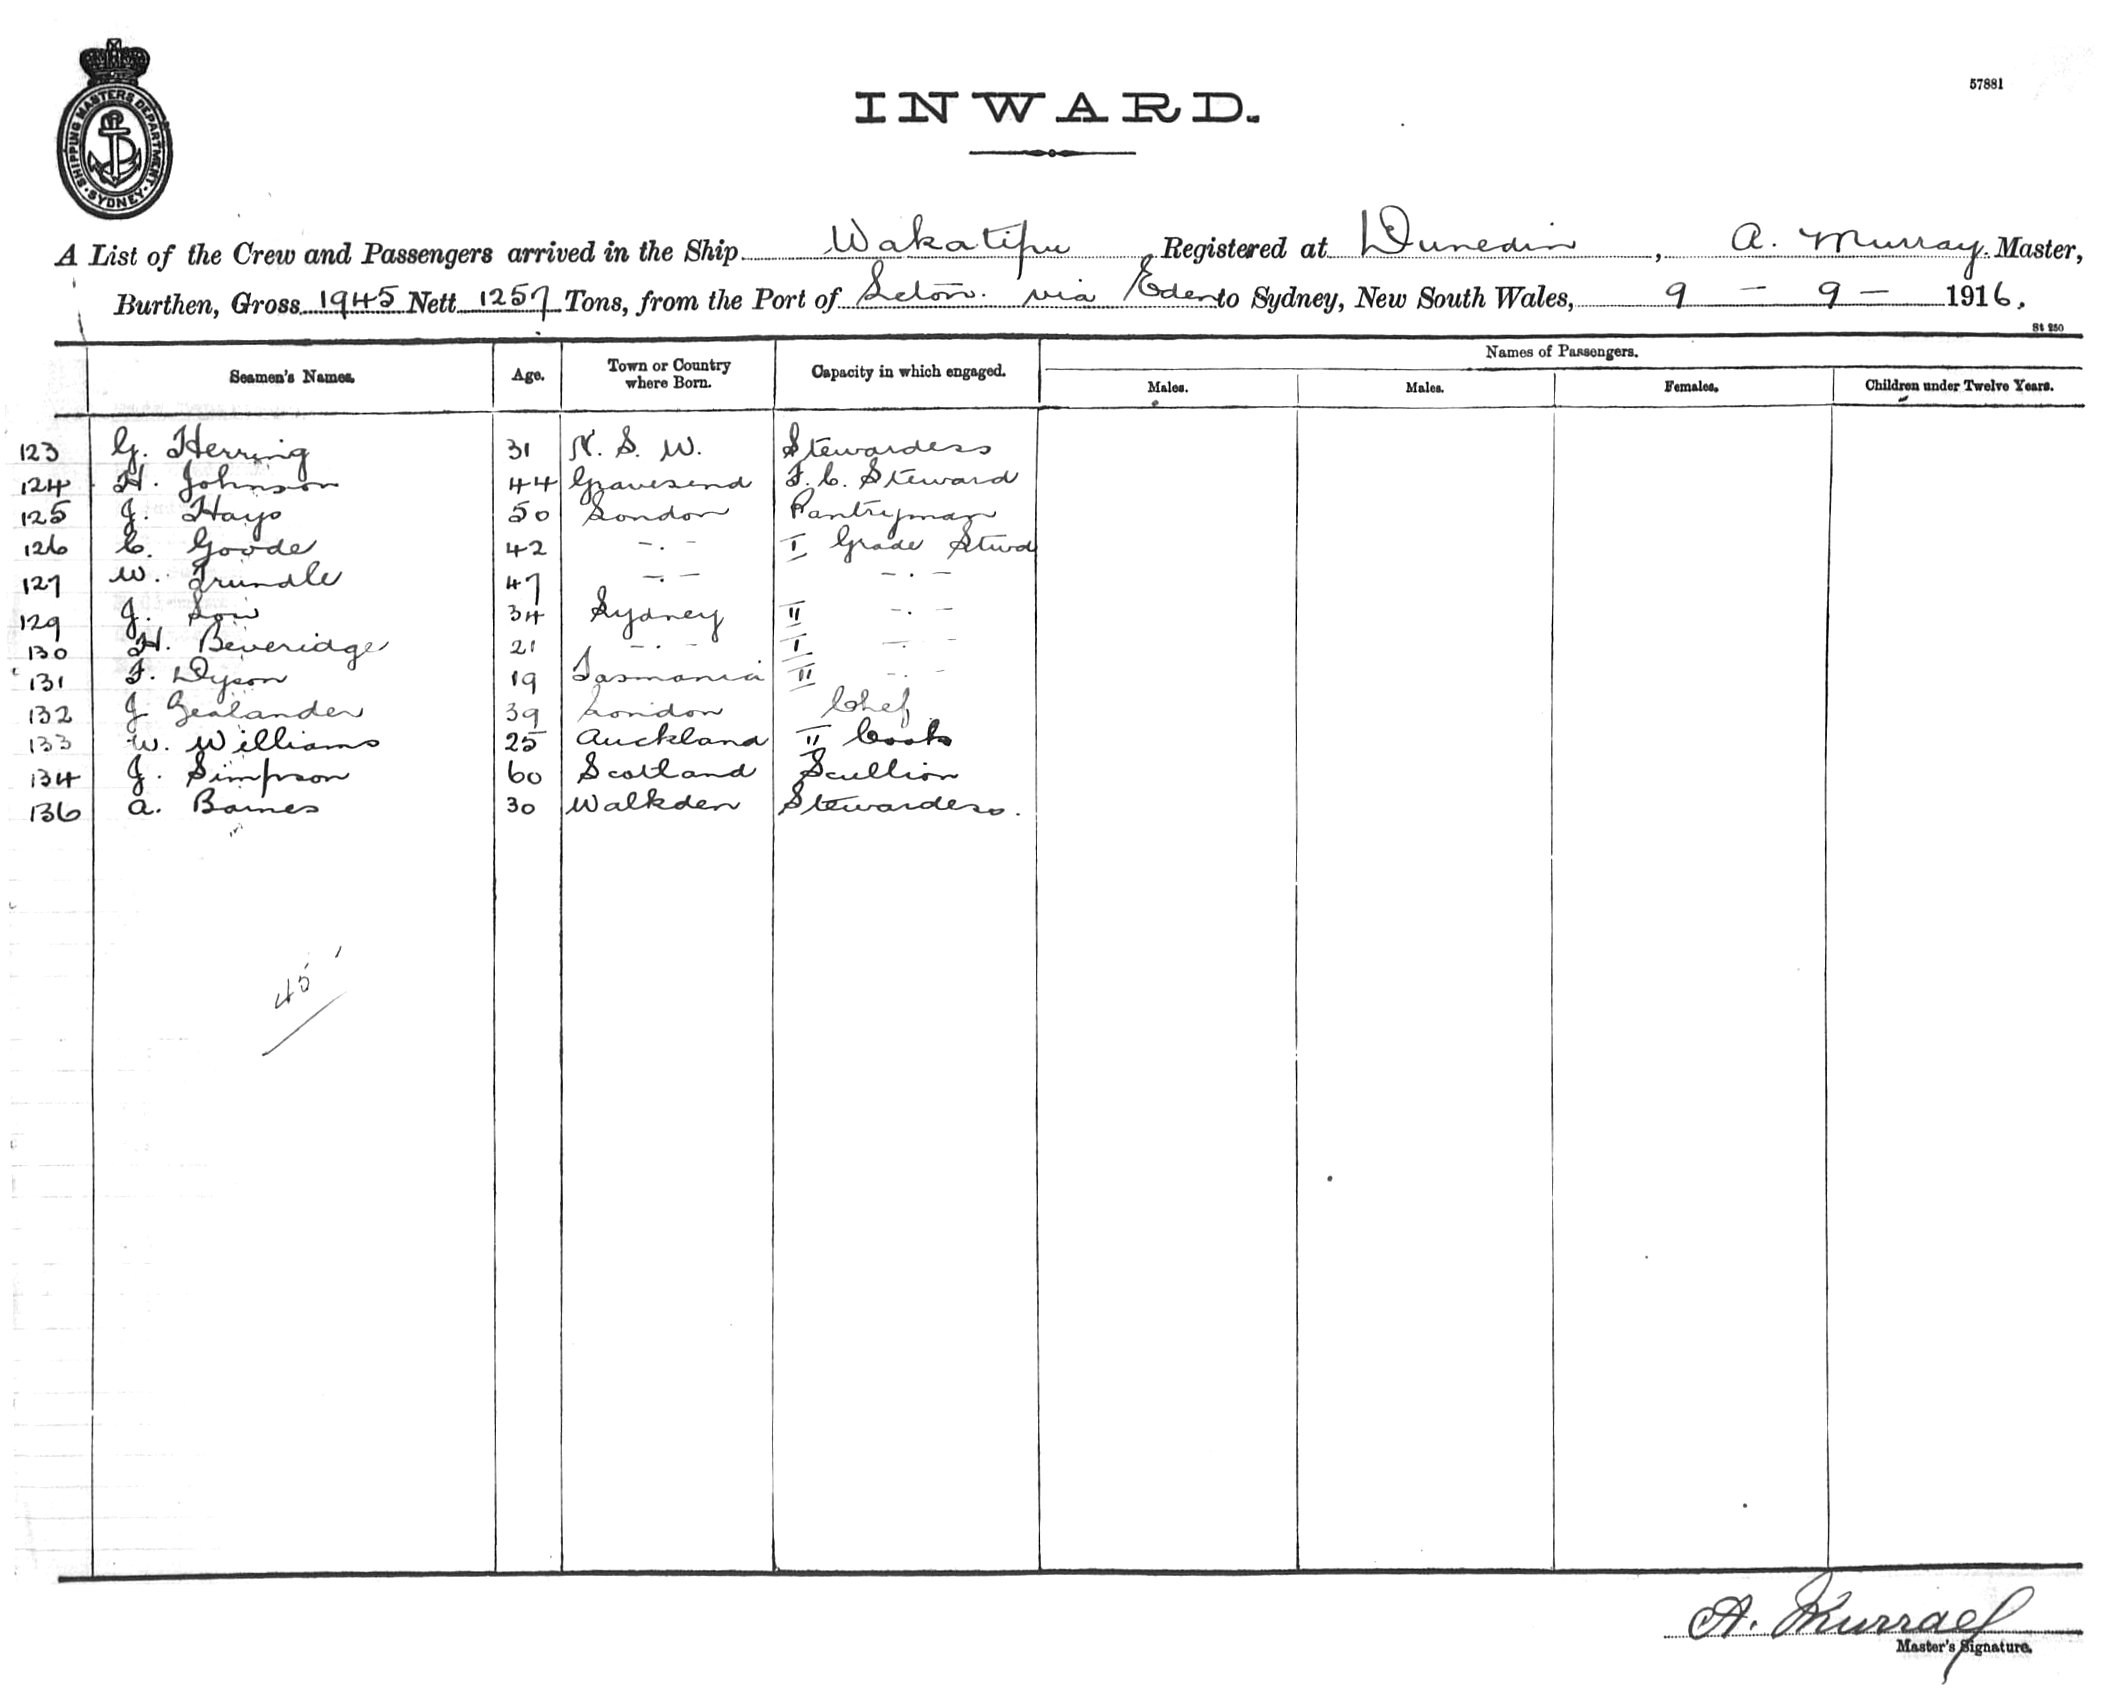 SHIPPING MASTERS DEPARTMENT · SYDNEY ·
57881
INWARD.
A List of the Crew and Passengers arrived in the Ship Wakatipu, Registered at Dunedin, A. Murray, Master,
Burthen, Gross 1945 Nett 1257 Tons, from the Port of via Eden to Sydney, New South Wales, 9 – 9 – 1916.
St 250
Names of Passengers.
Seamen's Names. Age. Town or Country where Born. Capacity in which engaged. Males. Males. Females. Children under Twelve Years.
123 G. Herring 31 N. S. W. Stewardess
124 H. Johnson 44 Gravesend F. C. Steward
125 J. Hays 50 London Pantryman
126 C. Goode 42 -.- I Grade Stwd
127 W. Trundle 47 -.- -.-
129 J. 34 Sydney II -.-
130 H. Beveridge 21 -.- I -.-
131 F. Dyson 19 Tasmania II -.-
132 J Gealander 39 London Chef
133 W. Williams 25 Auckland II Cook
134 J. Simpson 60 Scotland Scullion
136 A. Barnes 30 Walkden Stewardess.
45
A. Murray
Master's Signature.